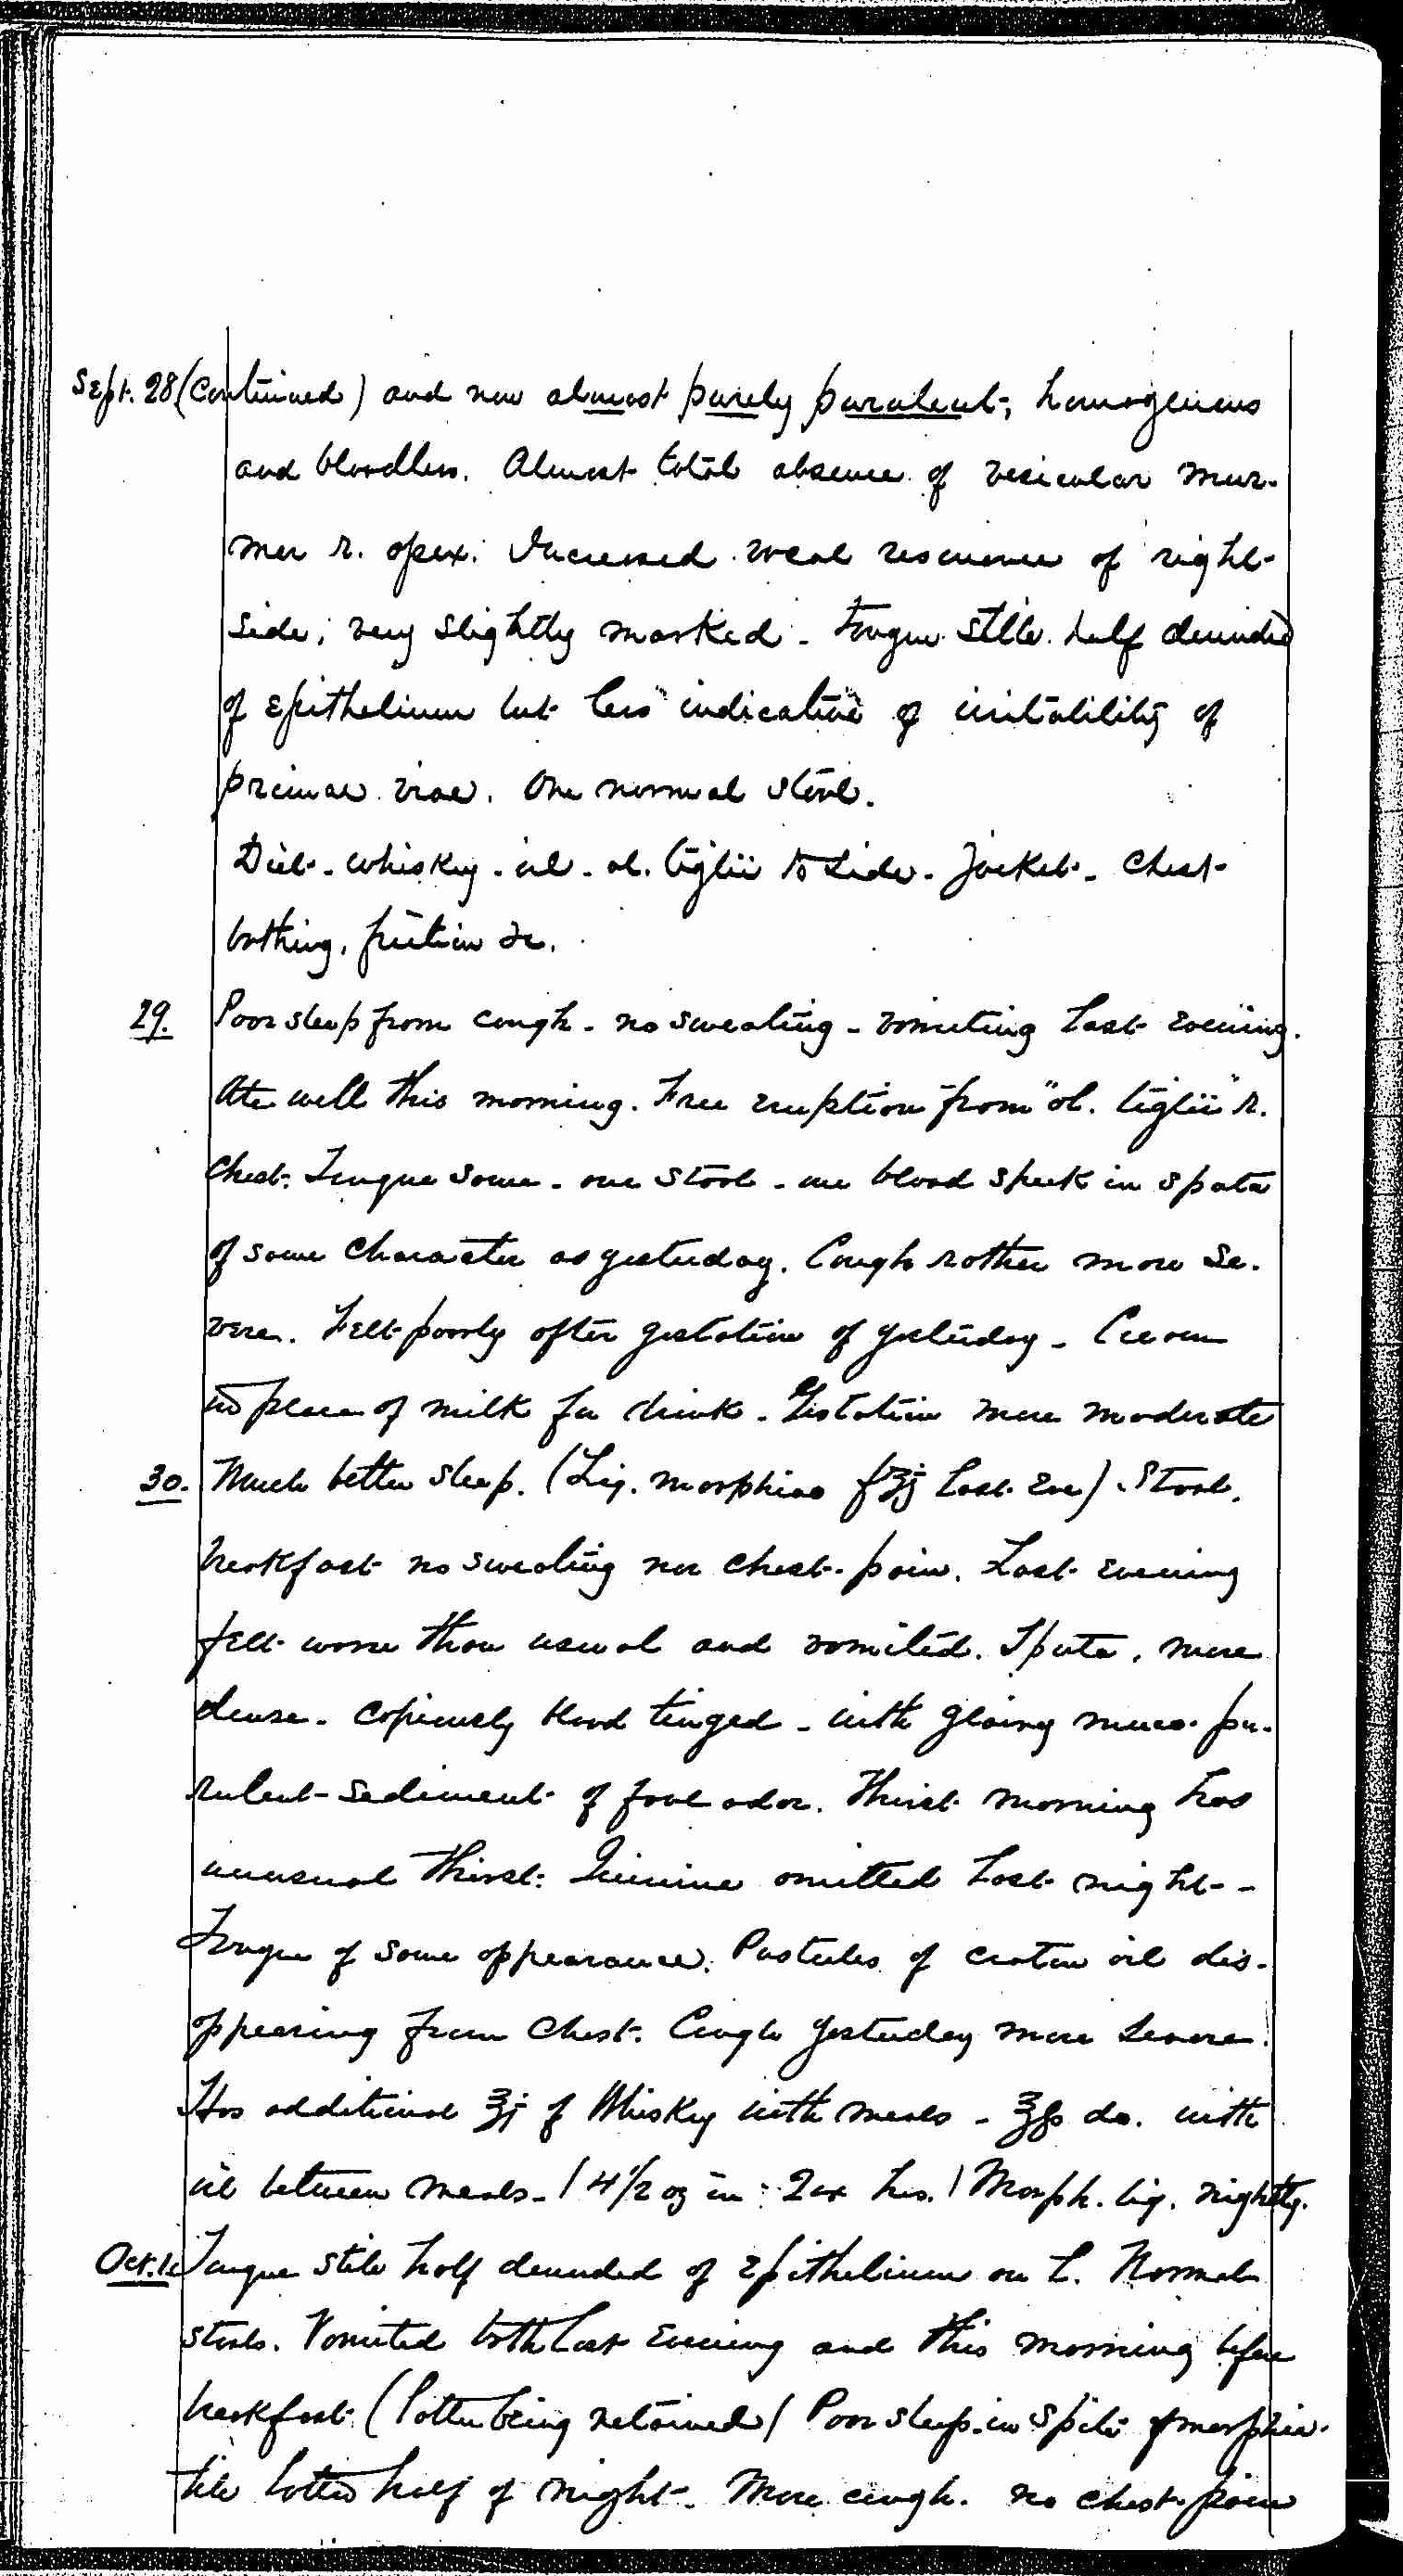 Sept. 28 (Continued) and now almost purely purulent, homogenious
and bloodless. Almost total absence of vesicular mur-
mer r. apex. Increased vocal resonance of right
side, very slightly marked. Tongue still half denuded
of epithelium but less indicative of irritability of
primae viae. One normal stool.
Diet - whiskey - oil - ol. tiglii to side - Jacket - Chest
bathing, friction &c.
29. Poor sleep from cough - no sweating - vomiting last evening.
Ate well this morning. Free eruption from "ol. tiglii" r.
Chest. Tongue same - one stool - one blood speck in sputa
of same character as yesterday. Cough rather more se-
vere. Felt poorly after gestation of yesterday - Cream
in place of milk for drink. Gestation more moderate
30. Much better sleep. (Liq. morphiae fʒj last Eve) Stool.
breakfast no sweating nor chest-pain. Last evening
felt worse than usual and vomited. Sputa, more
dense - copiously blood tinged - with glairy muco-pu-
rulent sediment of foul odor. Thirst morning has
unusual thirst. Quinine omitted last night -
Tongue of same appearance. Pustules of croton oil dis-
appearing from chest. Cough yesterday more severe.
Has additional ℥j of Whiskey with meals - ℥ss do. with
oil between meals - (4 1/2 oz in 24 hrs.) Morph. liq. nightly.
Oct. 1. Tongue still half denuded of epithelium on L. Normal
stools. Vomited both last Evening and this morning before
breakfast (latter being retained) Poor sleep in spite of morphia
till latter half of night. More cough. no chest-pain